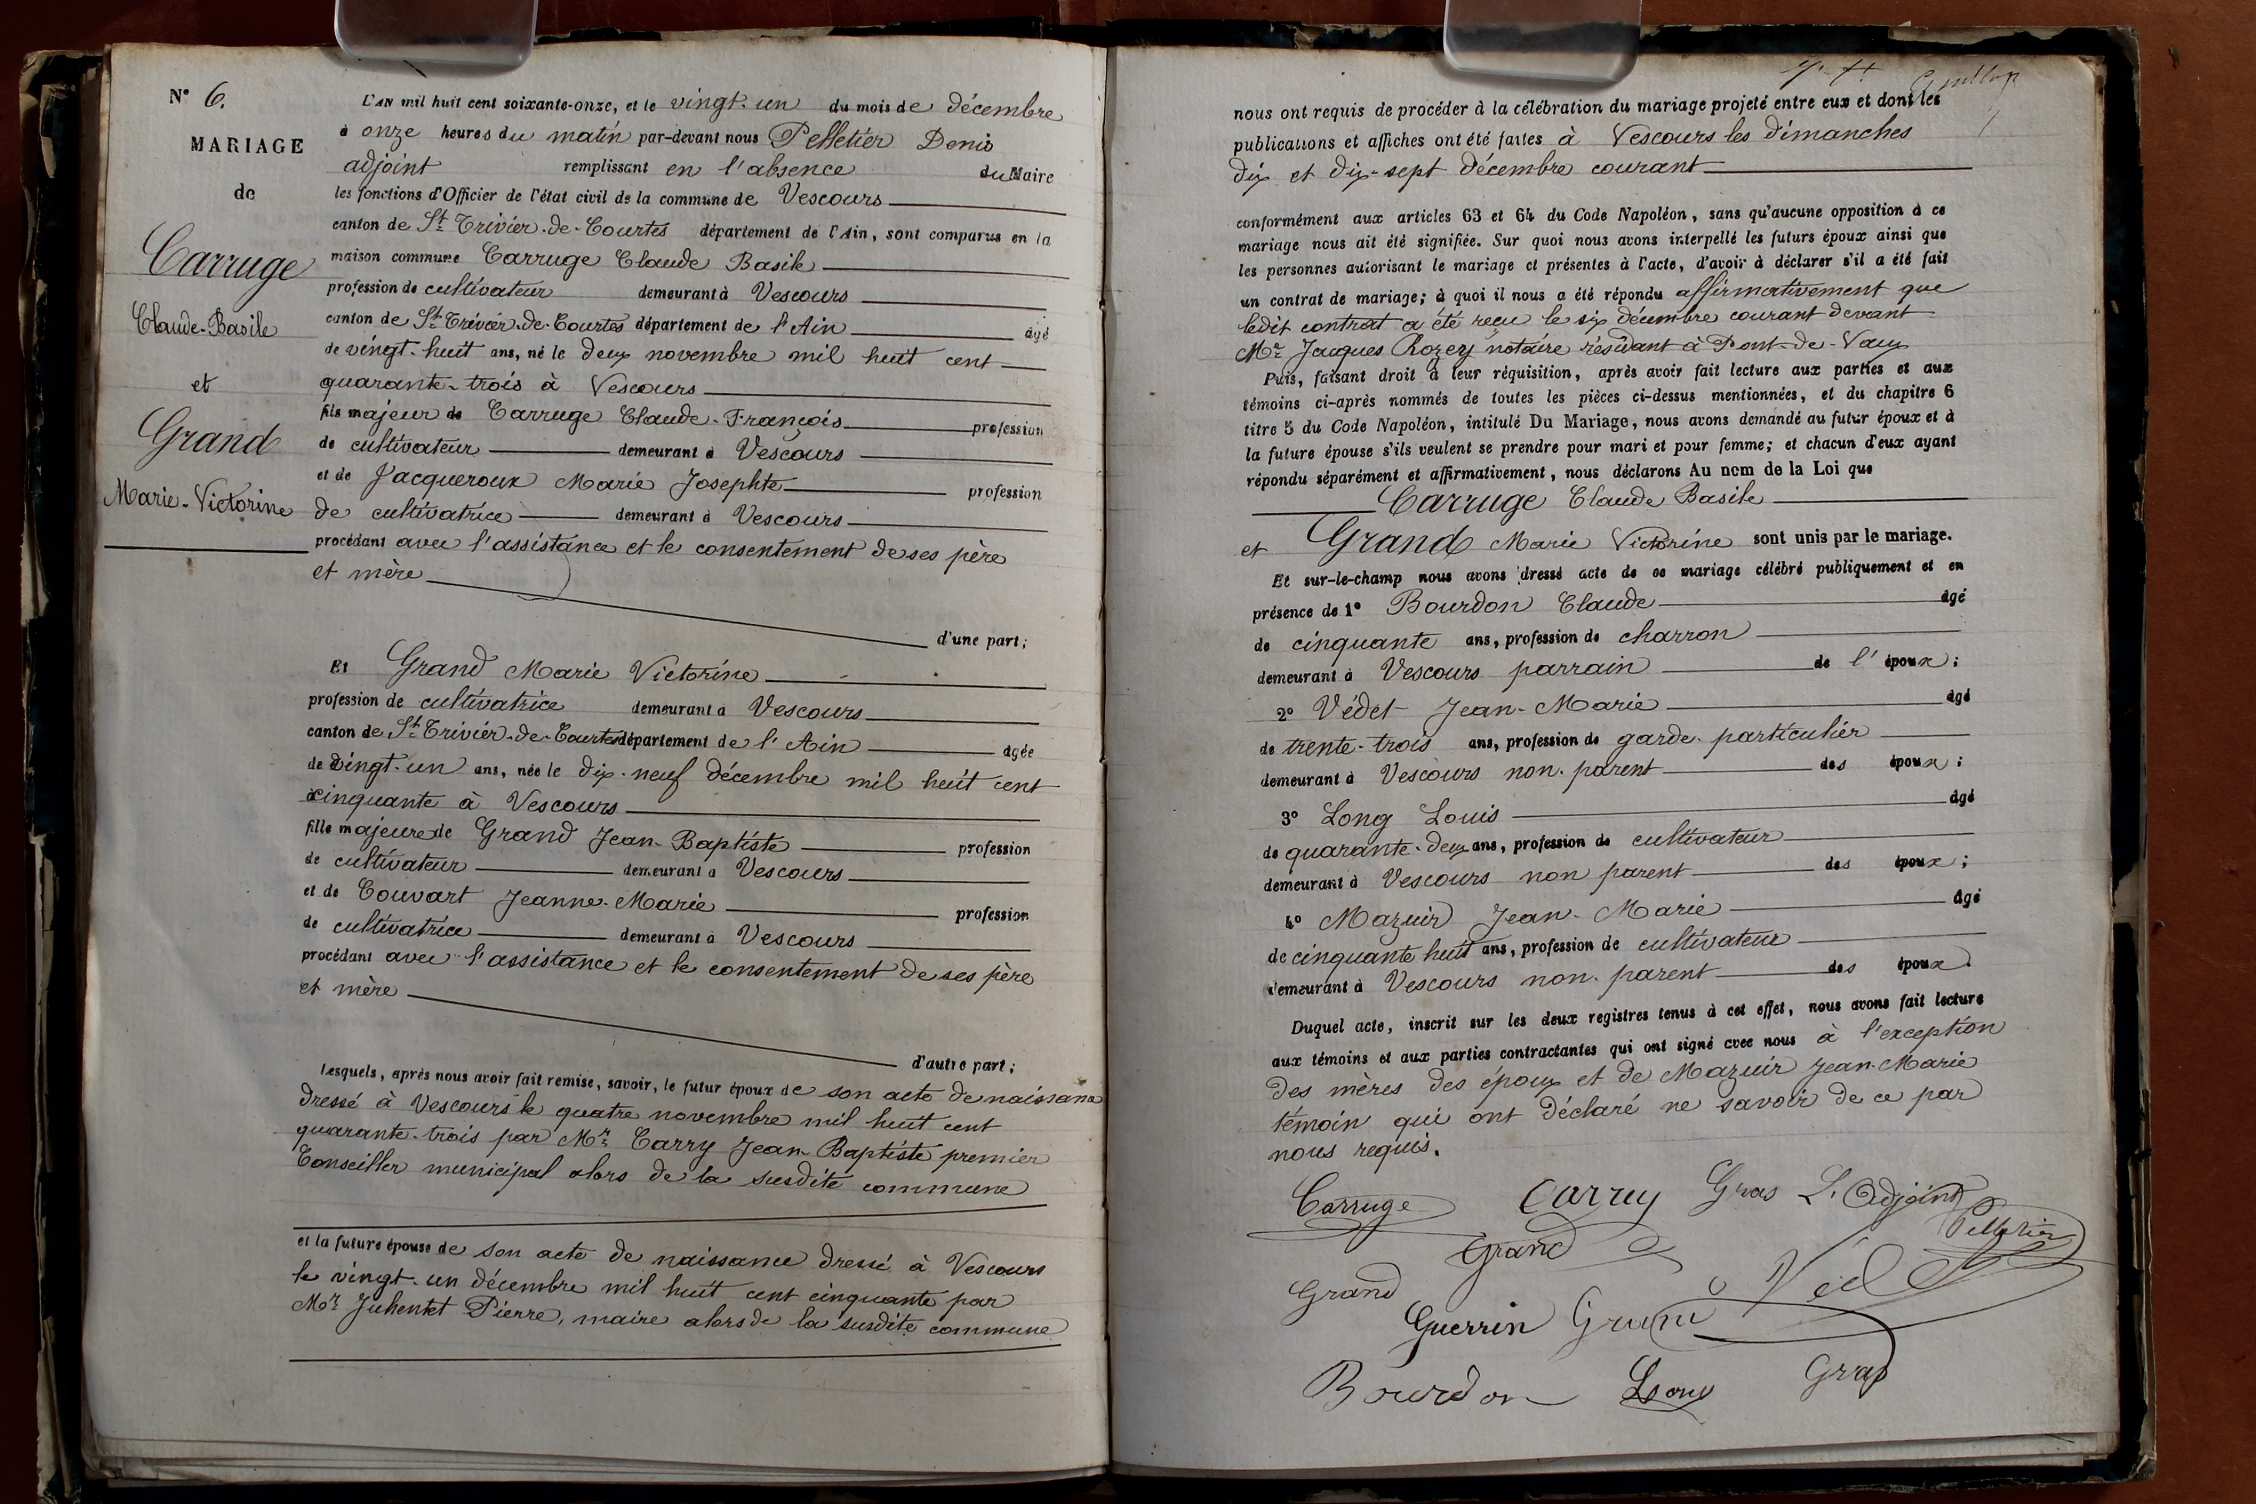 N° 6.
MARIAGE
de
Carruge
Claude-Basile
et
Grand
Marie-Victorine
L'AN mil huit cent soixante-onze, et le vingt-un du mois de décembre
à onze heures du matin par-devant nous Pelletier Denis
adjoint remplissant en l'absence du Maire
les fonctions d'Officier de l'état civil de la commune de Vescours
canton de St Trivier-de-Courtes département de l'Ain, sont comparus en la
maison commune Carruge Claude Basile
profession de cultivateur demeurant à Vescours
canton de St Trivier-de-Courtes département de l'Ain âgé
de vingt-huit ans, né le deux novembre mil huit cent
quarante-trois à Vescours
fils majeur de Carruge Claude-François profession
de cultivateur demeurant à Vescours
et de Jacqueroux Marie Josephte profession
de cultivatrice demeurant à Vescours
procédant avec l'assistance et le consentement de ses père
et mère
d'une part;
Et Grand Marie Victorine
profession de cultivatrice demeurant à Vescours
canton de St Trivier-de-Courtes département de l'Ain âgée
de vingt-un ans, née le dix-neuf décembre mil huit cent
cinquante à Vescours
fille majeure de Grand Jean-Baptiste profession
de cultivateur demeurant à Vescours
et de Couvart Jeanne-Marie profession
de cultivatrice demeurant à Vescours
procédant avec l'assistance et le consentement de ses père
et mère
d'autre part;
Lesquels, après nous avoir fait remise, savoir, le futur époux de son acte de naissance
dressé à Vescours le quatre novembre mil huit cent
quarante-trois par Mr Carry Jean-Baptiste premier
Conseiller municipal alors de la susdite commune
et la future épouse de son acte de naissance dressé à Vescours
le vingt-un décembre mil huit cent cinquante par
Mr Juhentet Pierre, maire alors de la susdite commune
nous ont requis de procéder à la célébration du mariage projeté entre eux et dont les
publications et affiches ont été faites à Vescours les dimanches
dix et dix-sept décembre courant
conformément aux articles 63 et 64 du Code Napoléon, sans qu'aucune opposition à ce
mariage nous ait été signifiée. Sur quoi nous avons interpellé les futurs époux ainsi que
les personnes autorisant le mariage et présentes à l'acte, d'avoir à déclarer s'il a été fait
un contrat de mariage; à quoi il nous a été répondu affirmativement que
ledit contrat a été reçu le six décembre courant devant
Me Jacques Rozey notaire résidant à Pont-de-Vaux
Puis, faisant droit à leur réquisition, après avoir fait lecture aux parties et aux
témoins ci-après nommés de toutes les pièces ci-dessus mentionnées, et du chapitre 6
titre 5 du Code Napoléon, intitulé Du Mariage, nous avons demandé au futur époux et à
la future épouse s'ils veulent se prendre pour mari et pour femme; et chacun d'eux ayant
répondu séparément et affirmativement, nous déclarons Au nom de la Loi que
Carruge Claude Basile
et Grand Marie Victorine sont unis par le mariage.
Et sur-le-champ nous avons dressé acte de ce mariage célébré publiquement et en
présence de 1° Bourdon Claude âgé
de cinquante ans, profession de charron
demeurant à Vescours parrain de l'époux;
2° Védet Jean-Marie âgé
de trente-trois ans, profession de garde-particulier
demeurant à Vescours non-parent des époux;
3° Long Louis âgé
de quarante-deux ans, profession de cultivateur
demeurant à Vescours non parent des époux;
4° Mazuir Jean-Marie âgé
de cinquante huit ans, profession de cultivateur
demeurant à Vescours non-parent des époux.
Duquel acte, inscrit sur les deux registres tenus à cet effet, nous avons fait lecture
aux témoins et aux parties contractantes qui ont signé avec nous à l'exception
des mères des époux et de Mazuir Jean-Marie
témoin qui ont déclaré ne savoir de ce par
nous requis.
Carruge Carrey Gras L'Adjoint
Grand Pelletier
Grand Véd
Guerrin Grand
Bourdon Long Gras